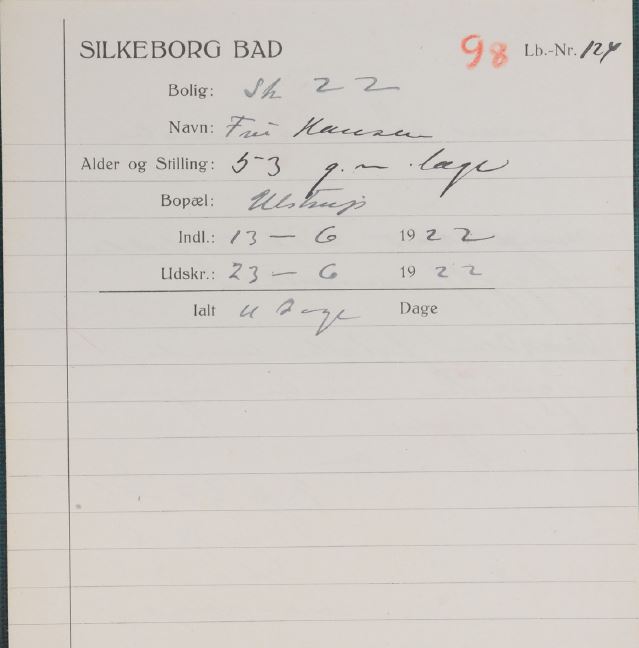 SILKEBORG BAD 98 Lb.-Nr. 124
Bolig: Sk 22
Navn: Fru Hansen
Alder og Stilling: 53 g. m. læge
Bopæl: Ulstrup
Indl.: 13 - 6 1922
Udskr.: 23 - 6 1922
Ialt 11 Dage Dage